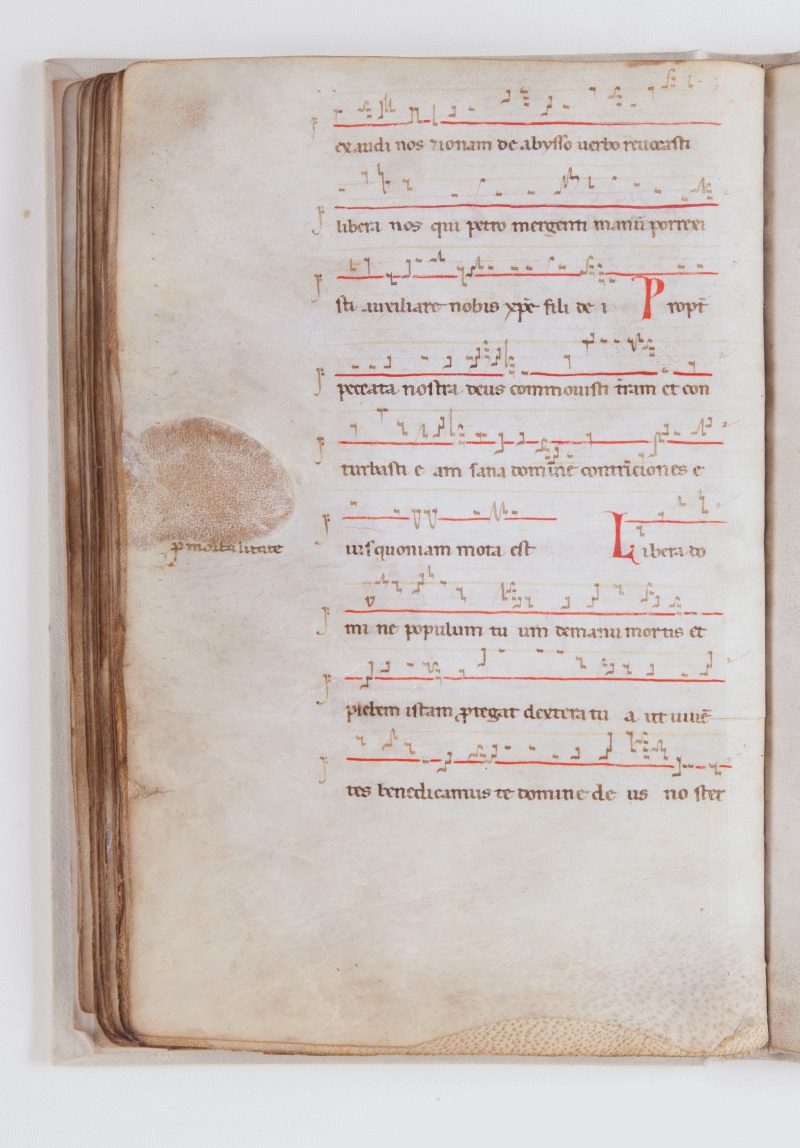 exaudi nos qui ionam de abysso uerbo reuocasti
libera nos qui petro mergenti manū porrexi
sti auxiliare nobis xp̄e fili de i Propt̄
peccata nostra deus commouisti t̄ram et con
turbasti e am sana domine contriciones e
ius quoniam mota est Libera do
ꝑ mortalitate
mi ne populum tu um demanu mortis et
plebem istam ꝓtegat dextera tu a ut uiuē
tes benedicamus te domine de us no ster